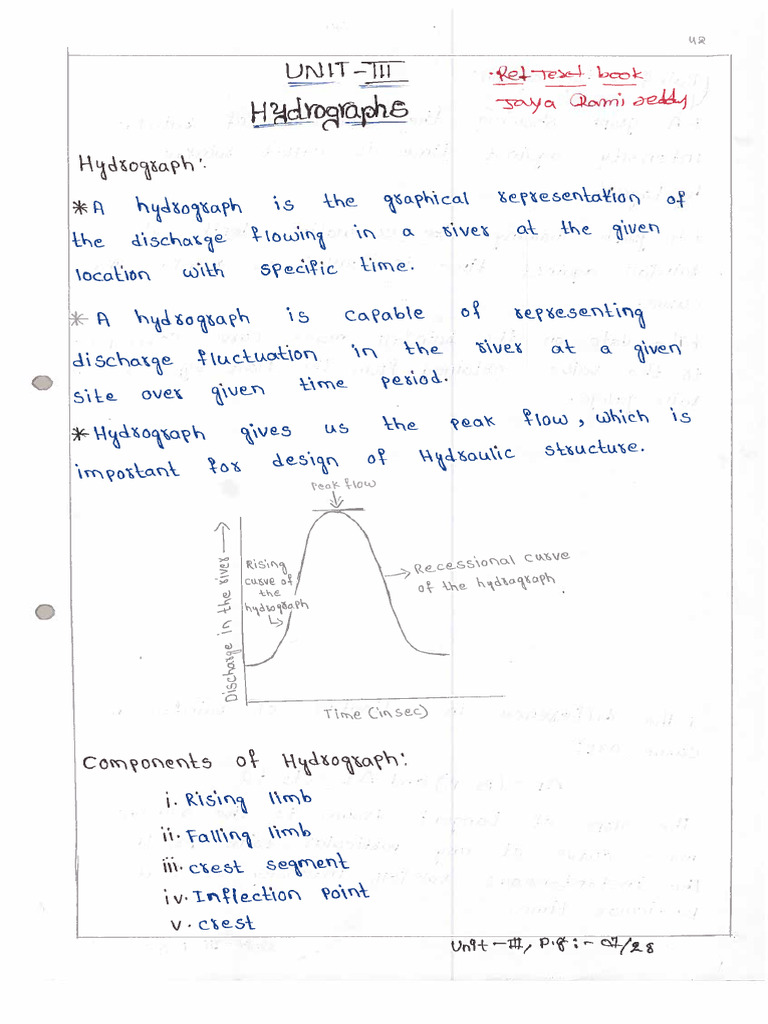 42
UNIT-III
Hydrographs
·Ref Text book
Jaya Rami Reddy
Hydrograph:
* A hydrograph is the graphical representation of
the discharge flowing in a river at the given
location with specific time.
* A hydrograph is capable of representing
discharge fluctuation in the river at a given
site over given time period.
* Hydrograph gives us the peak flow, which is
important for design of Hydraulic structure.
Peak flow
Discharge in the river
Rising
curve of
the
hydrograph
Recessional curve
of the hydrograph.
Time (in sec)
Components of Hydrograph:
i. Rising limb
ii. Falling limb
iii. crest segment
iv. Inflection point
v. crest
Unit-III, P.g:- 01/28